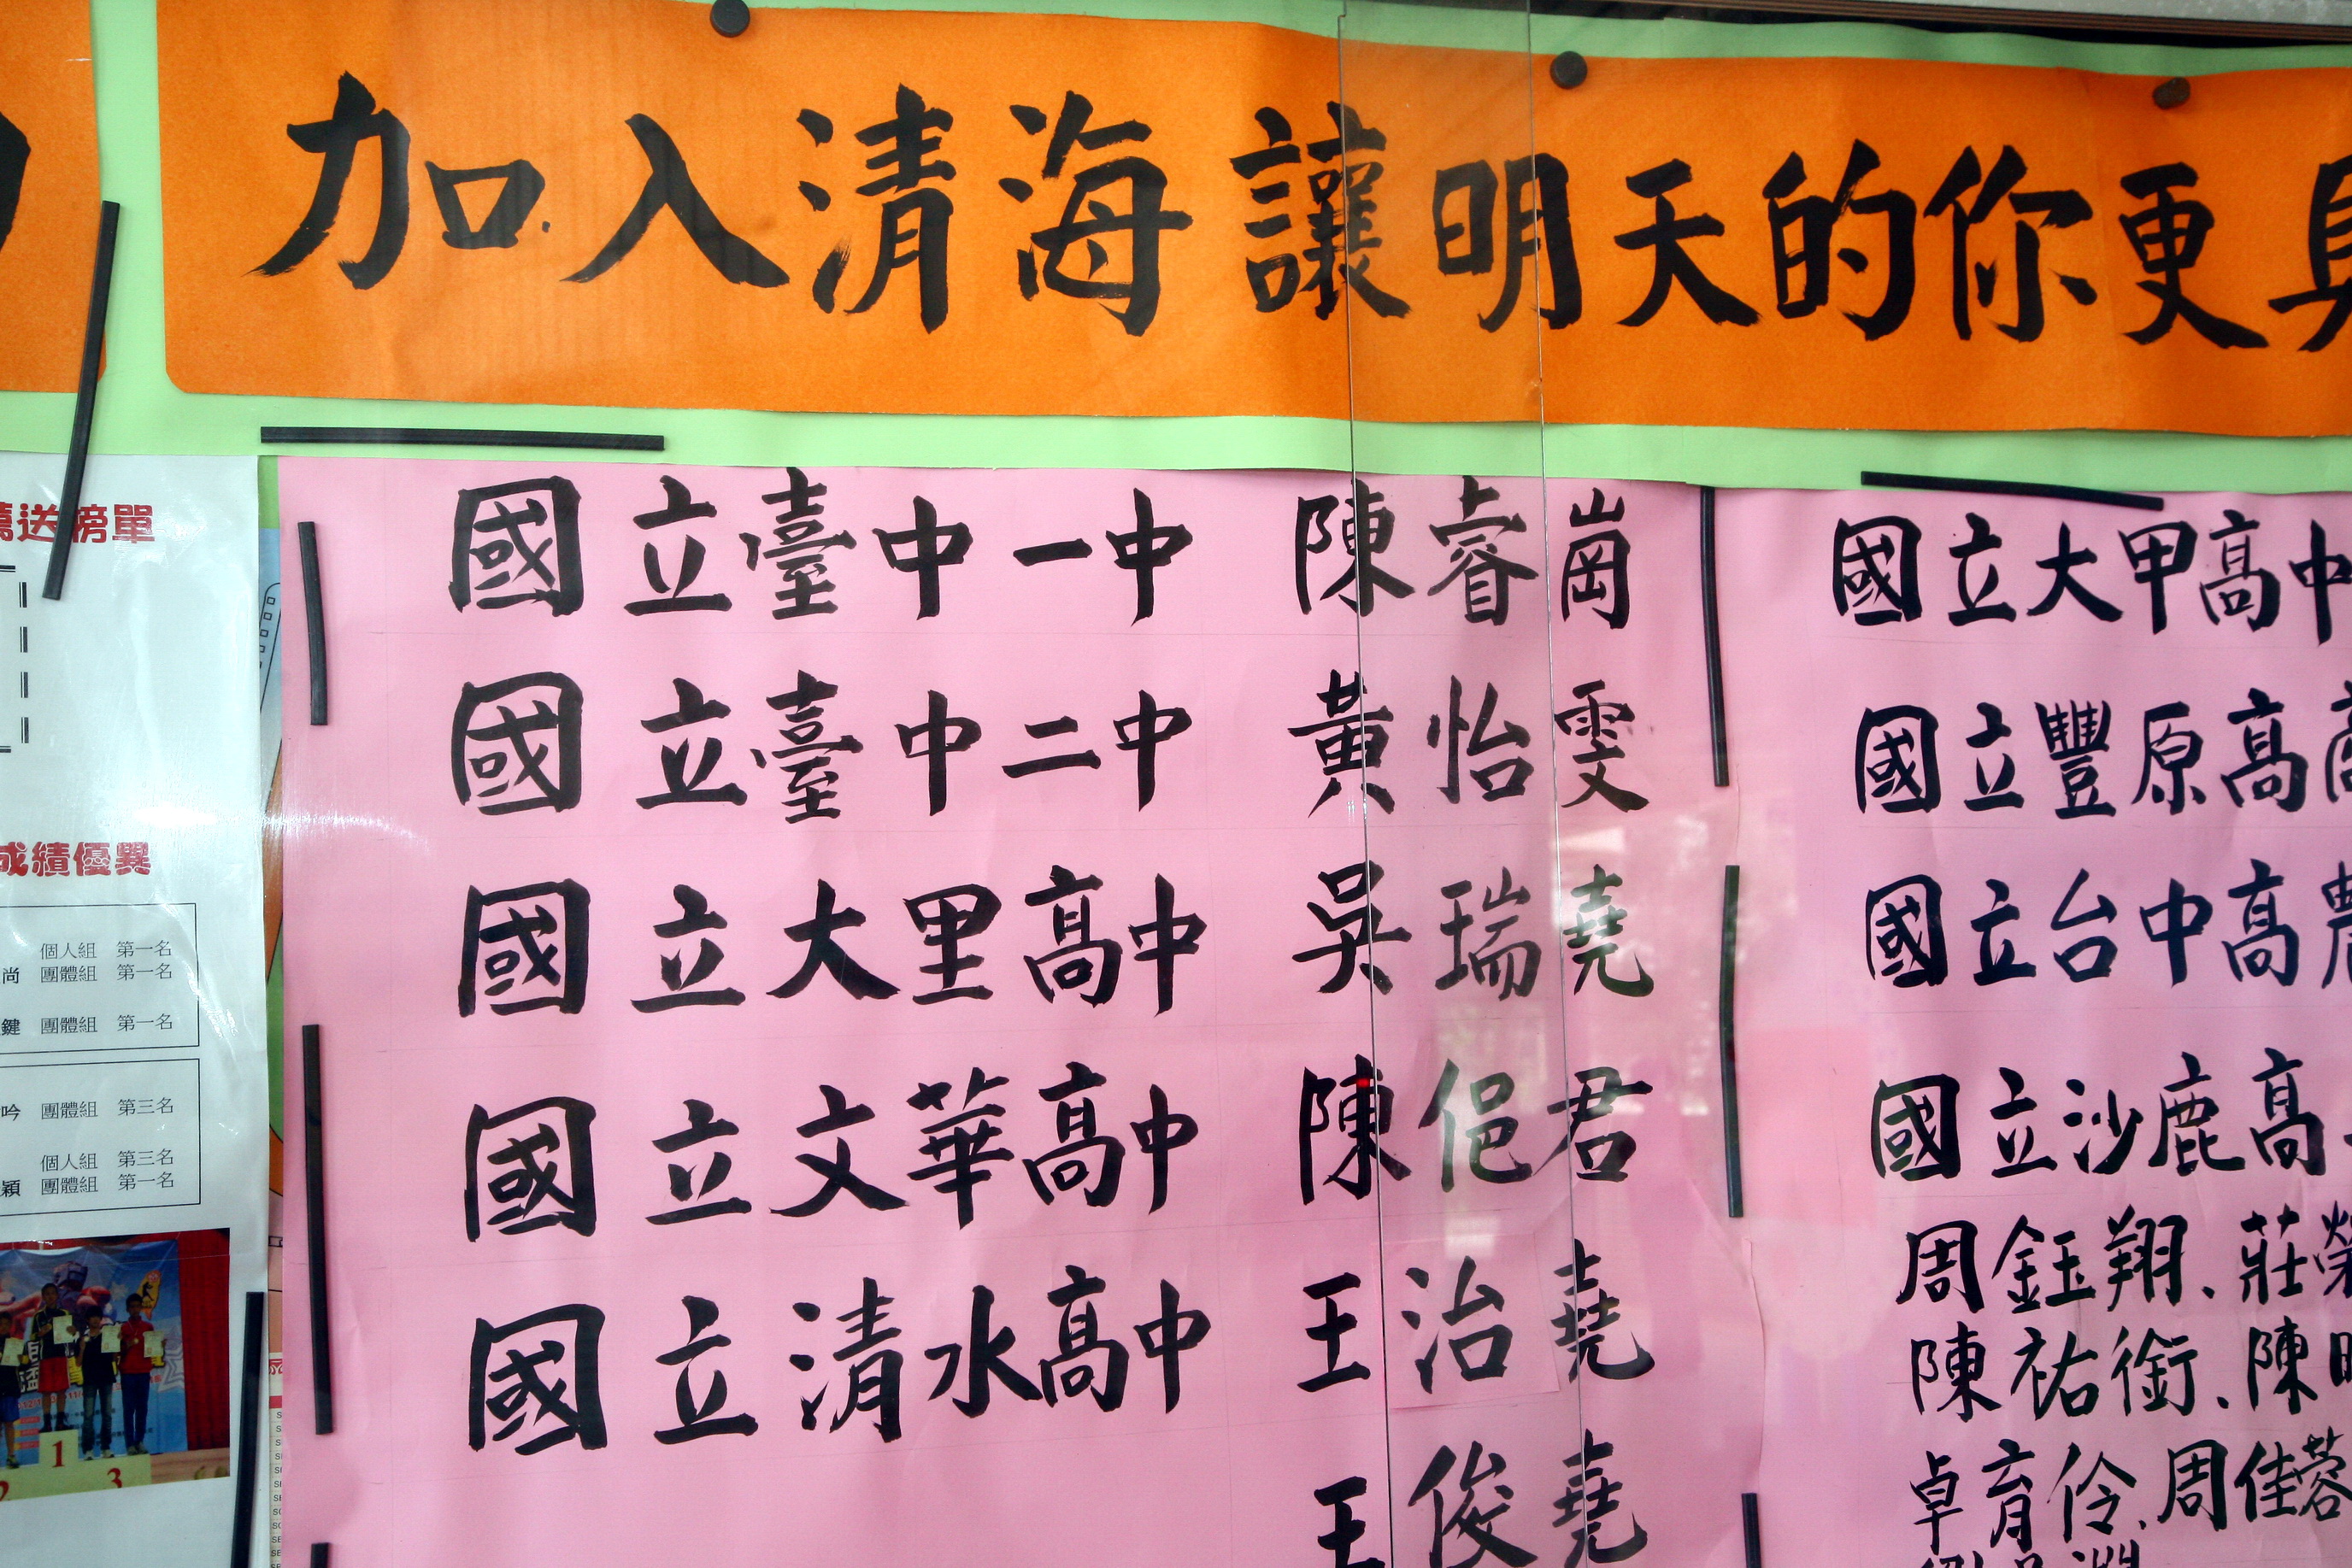 加入清海讓明天的你更
國立臺中一中 陳睿崗
國立臺中二中 黃怡雯
國立大里高中 吳瑞堯
國立文華高中 陳俋君
國立清水高中 王治堯
王俊堯
國立大甲高中
國立豐原高
國立台中高農
國立沙鹿高
周鈺翔、莊榮
陳祐銜、陳
卓育伶、周佳蓉
薦送榜單
成績優異
個人組 第一名
尚 團體組 第一名
鍵 團體組 第一名
吟 團體組 第三名
個人組 第三名
穎 團體組 第一名
1
2
3